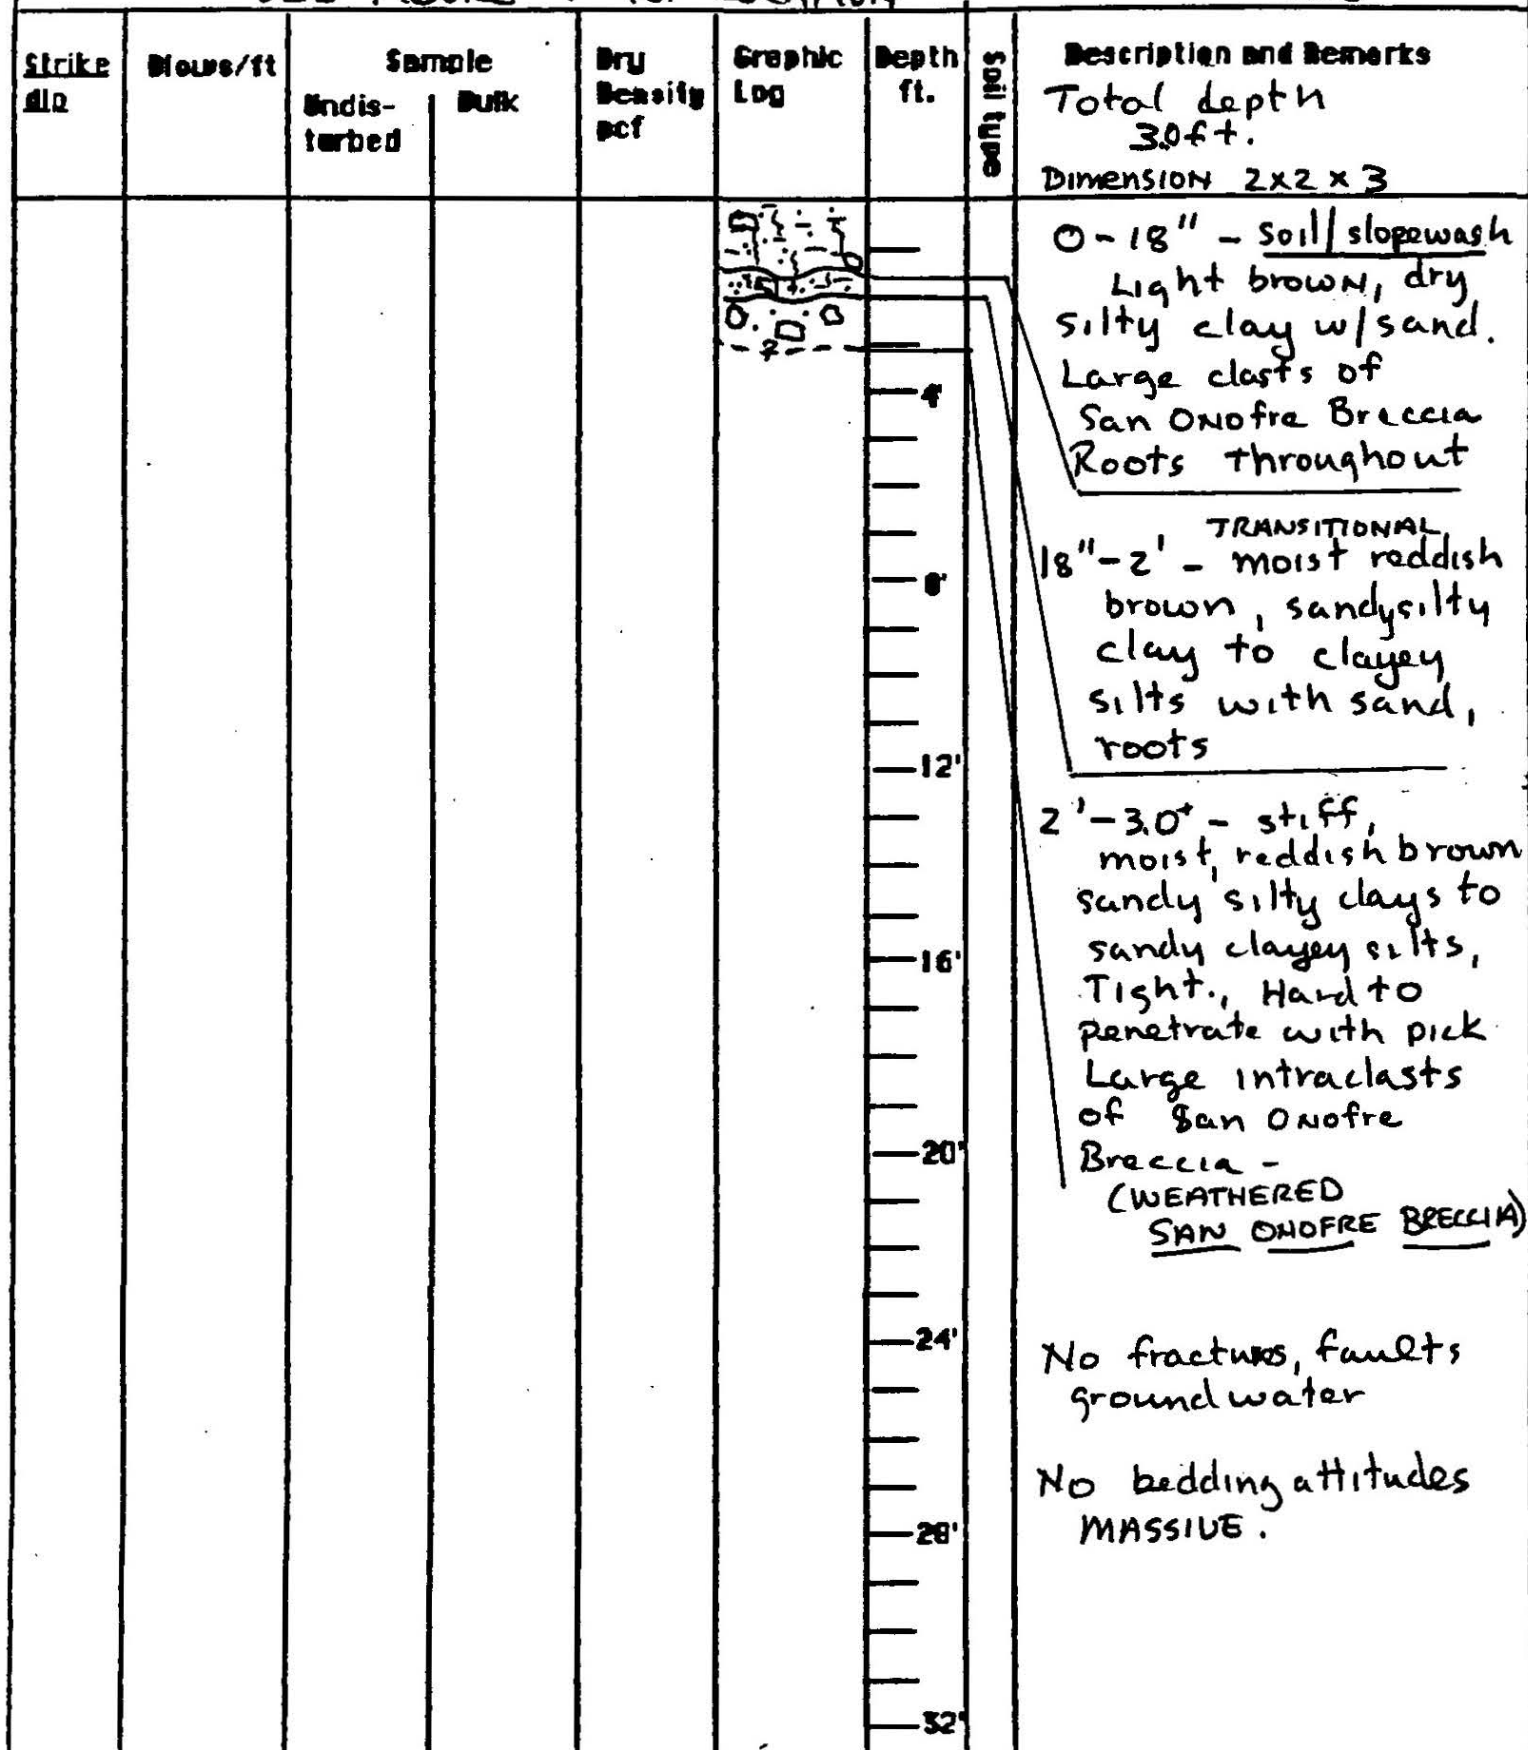 Strike
dip
Blows/ft
Sample
Undis-
turbed
Bulk
Dry
Density
pcf
Graphic
Log
Depth
ft.
Soil type
Description and Remarks
Total depth
3.0ft.
Dimension 2x2x3
0-18" - Soil/slopewash
Light brown, dry
silty clay w/sand.
Large clasts of
San Onofre Breccia
Roots throughout
TRANSITIONAL
18"-2' - moist reddish
brown, sandysilty
clay to clayey
silts with sand,
roots
2'-3.0+ - stiff,
moist, reddish brown
sandy silty clays to
sandy clayey silts,
Tight., Hard to
penetrate with pick
Large intraclasts
of San Onofre
Breccia -
(WEATHERED
SAN ONOFRE BRECCIA)
No fractures, faults
groundwater
No bedding attitudes
MASSIVE.
?
4'
8'
12'
16'
20'
24'
28'
32'